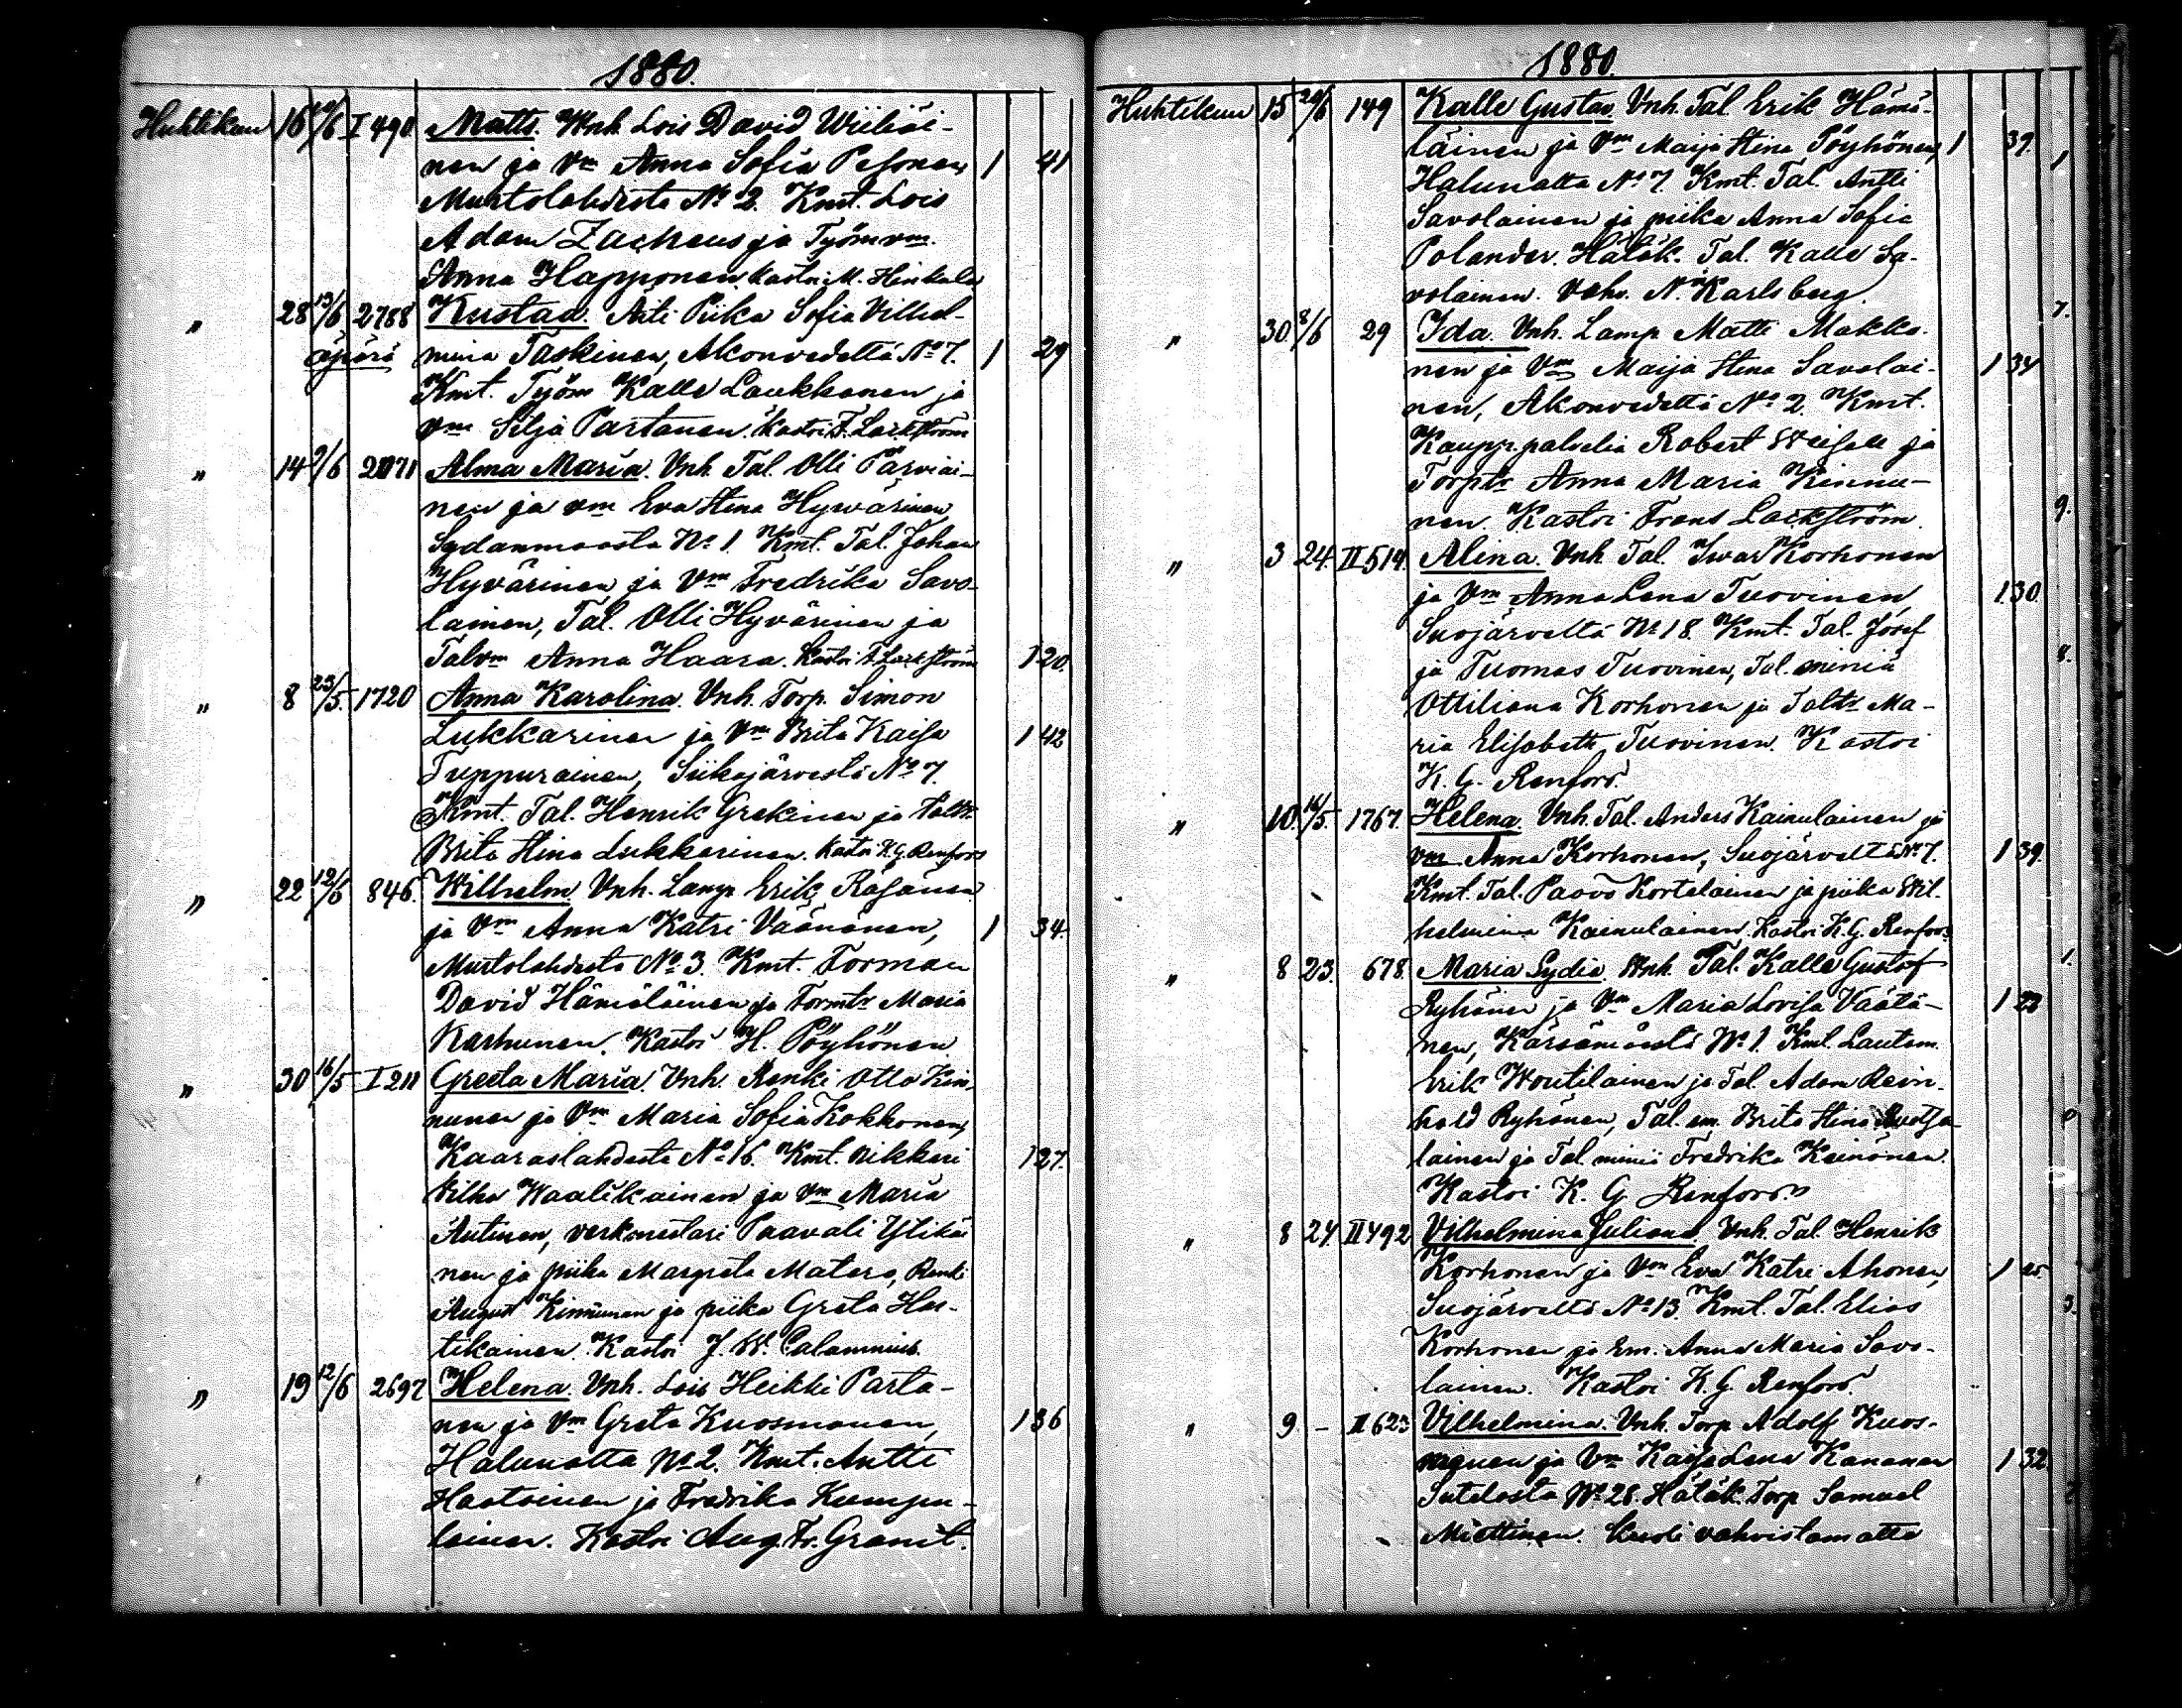 1880.
Huhtikuu 16 /6 I 490 Matts. Vnh. Lois David Wiiliäi-
nen ja Vm Anna Sofia Pesonen, 1 41
Murtolahdesta No 2. Kmt. Lois
Adam Zacheus ja Työm vm.
Anna Happonen. Kastoi M. Hinkula
" 28 13/6 2788 Kustav. Äiti Piika Sofia Vilhel-
äpärä mina Taskinen, Akonvedeltä No 7. 1 29
Kmt. Työm Kalle Laukkanen ja
vm Silja Partanen. Kastoi F. Lackström
" 14 9/6 2071 Alma Maria. Vnh. Tal. Olli Parviai-
nen ja vm Eva Stina Hyvärinen
Sydanmaasta No 1. Kmt. Tal. Johan
Hyvärinen ja Vm Fredrika Savo-
lainen, Tal. Olli Hyvärinen ja
Talvm Anna Haara. Kastoi F. Lackström 1 20.
" 8 23/5. 1720 Anna Karolina. Vnh. Torp. Simon
Lukkarinen ja Vm Brita Kaisa 1 42
Tuppurainen, Siikajärvestä No 7.
Kmt. Tal. Henrik Grekinen ja Taltr.
Brita Stina Lukkarinen. Kastoi K. G. Renfors
" 22 12/6 846. Wilhelm. Vnh. Lamp. Erik Räsänen
ja Vm Anna Katri Väänänen, 1 34.
Murtolahdesta No 3. Kmt. Forman
David Hämäläinen ja Formtr Maria
Karhunen. Kastoi H. Pöyhönen
" 30 16/5 I 211 Greta Maria. Vnh. Renki Otto Kin-
nunen ja Vm Maria Sofia Kokkonen,
Kaaraslahdesta No 16. Kmt. Nikkari 1 27.
Vilho Waalikainen ja Vm Maria
Autinen, verkonestari Paavali Ylikäi
nen ja piika Margreta Matero, Renki
August Kinnunen ja piika Greta Har-
tikainen. Kastoi J. W. Calamnius.
" 19 12/6 2697 Helena. Vnh. Lois Heikki Parta-
nen ja Vm Greta Kuosmanen, 1 36
Halunalta No 2. Kmt. Antti
Haatainen ja Fredrika Kumpu-
lainen. Kastoi Aug. Fr. Granit.
1880.
Huhtikuu 15 20/6 149 Kalle Gustav. Vnh. Tal. Erik Hämä-
läinen ja Vm Maija Stina Pöyhönen, 1 39.
Halunalta No 7. Kmt. Tal. Antti
Savolainen ja piika Anna Sofia
Polander. Hätäk. Tal. Kalle Sa-
volainen. Vahv. N. Karlsberg.
" 30. 8/6 29 Ida. Vnh. Lamp. Matti Makko-
nen ja Vm Maija Stina Savolai- 1 34
nen, Akonvedeltä No 2. Kmt.
Kaupp. palvelia Robert Weisell ja
Torptr Anna Maria Kinnu-
nen. Kastoi Frans Lackström.
" 3 24. II 514. Alina. Vnh. Tal. Iwar Korhonen
ja Vm Anna Lena Tuovinen, 1. 30.
Suojärveltä No 18. Kmt. Tal. Josef
ja Tuomas Tuovinen, Tal. miniä
Ottiliana Korhonen ja Taltr Ma-
ria Elisabeth Tuovinen. Kastoi
K. G. Renfors.
" 10. 16/5. 1767. Helena. Vnh. Tal. Anders Kainulainen ja
vm Anna Korhonen, Suojärveltä No 7. 1 39.
Kmt. Tal. Paavo Kortelainen ja piika Wil-
helmina Kainulainen. Kastoi K. G. Renfors.
" 8 23. 678. Maria Lydia. Vnh. Tal. Kalle Gustaf
Ryhänen ja Vm Maria Lovisa Väätä- 1 23
nen, Kärsämäestä No 1. Kmt. Lautam.
Erik Woutilainen ja Tal. Adam Rein-
hold Ryhänen, Tal. em. Brita Stina Ruotsa-
lainen ja Tal. miniä Fredrika Keinänen.
Kastoi K. G. Renfors.
" 8 24. II 492 Vilhelmina Juliana. Vnh. Tal. Henrik
Korhonen ja Vm Eva Katri Ahonen, 1
Suojärveltä No 13. Kmt. Tal. Elias
Korhonen ja Em. Anna Maria Savo-
lainen. Kastoi K. G. Renfors.
" 9 - II 623 Vilhelmina. Vnh. Torp. Adolf Kuos-
manen ja Vm Kaisa Lena Kananen 1 32
Sutelasta No 28. Hätäk. Torp Samuel
Miettinen. Kuoli vahvistamatta